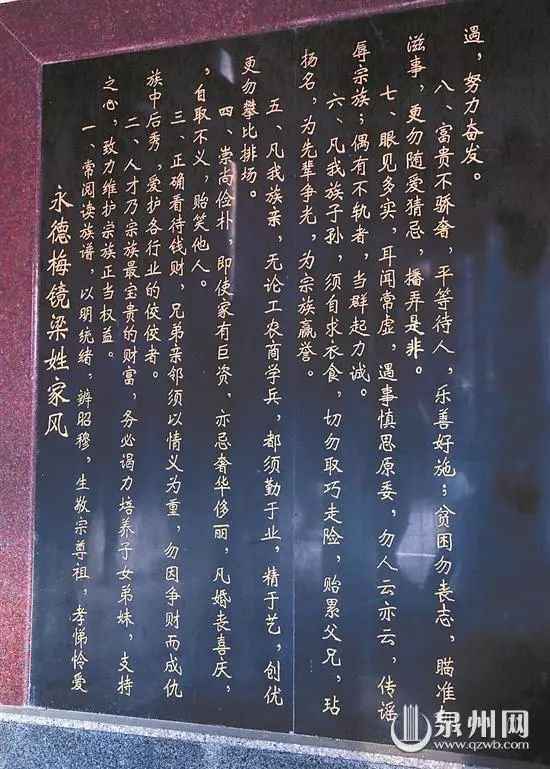 永德梅镜梁姓家风
一、常阅读族谱，以明统绪，辨昭穆，生敬宗尊祖，孝悌怜爱
之心，致力维护宗族正当权益。
二、人才乃宗族最宝贵的财富，务必竭力培养子女弟妹，支持
族中后秀，爱护各行业的佼佼者。
三、正确看待钱财，兄弟亲邻须以情义为重，勿因争财而成仇
，自取不义，贻笑他人。
四、崇尚俭朴，即使家有巨资，亦忌奢华侈丽，凡婚丧喜庆，
更勿攀比排场。
五、凡我族亲，无论工农商学兵，都须勤于业，精于艺，创优
扬名，为先辈争光，为宗族赢誉。
六、凡我族子孙，须自求衣食，切勿取巧走险，贻累父兄，玷
辱宗族；偶有不轨者，当群起力诫。
七、眼见多实，耳闻常虚，遇事慎思原委，勿人云亦云，传谣
滋事，更勿随爱猜忌，播弄是非。
八、富贵不骄奢，平等待人，乐善好施；贫困勿丧志，瞄准
遇，努力奋发。
泉州网
www.qzwb.com